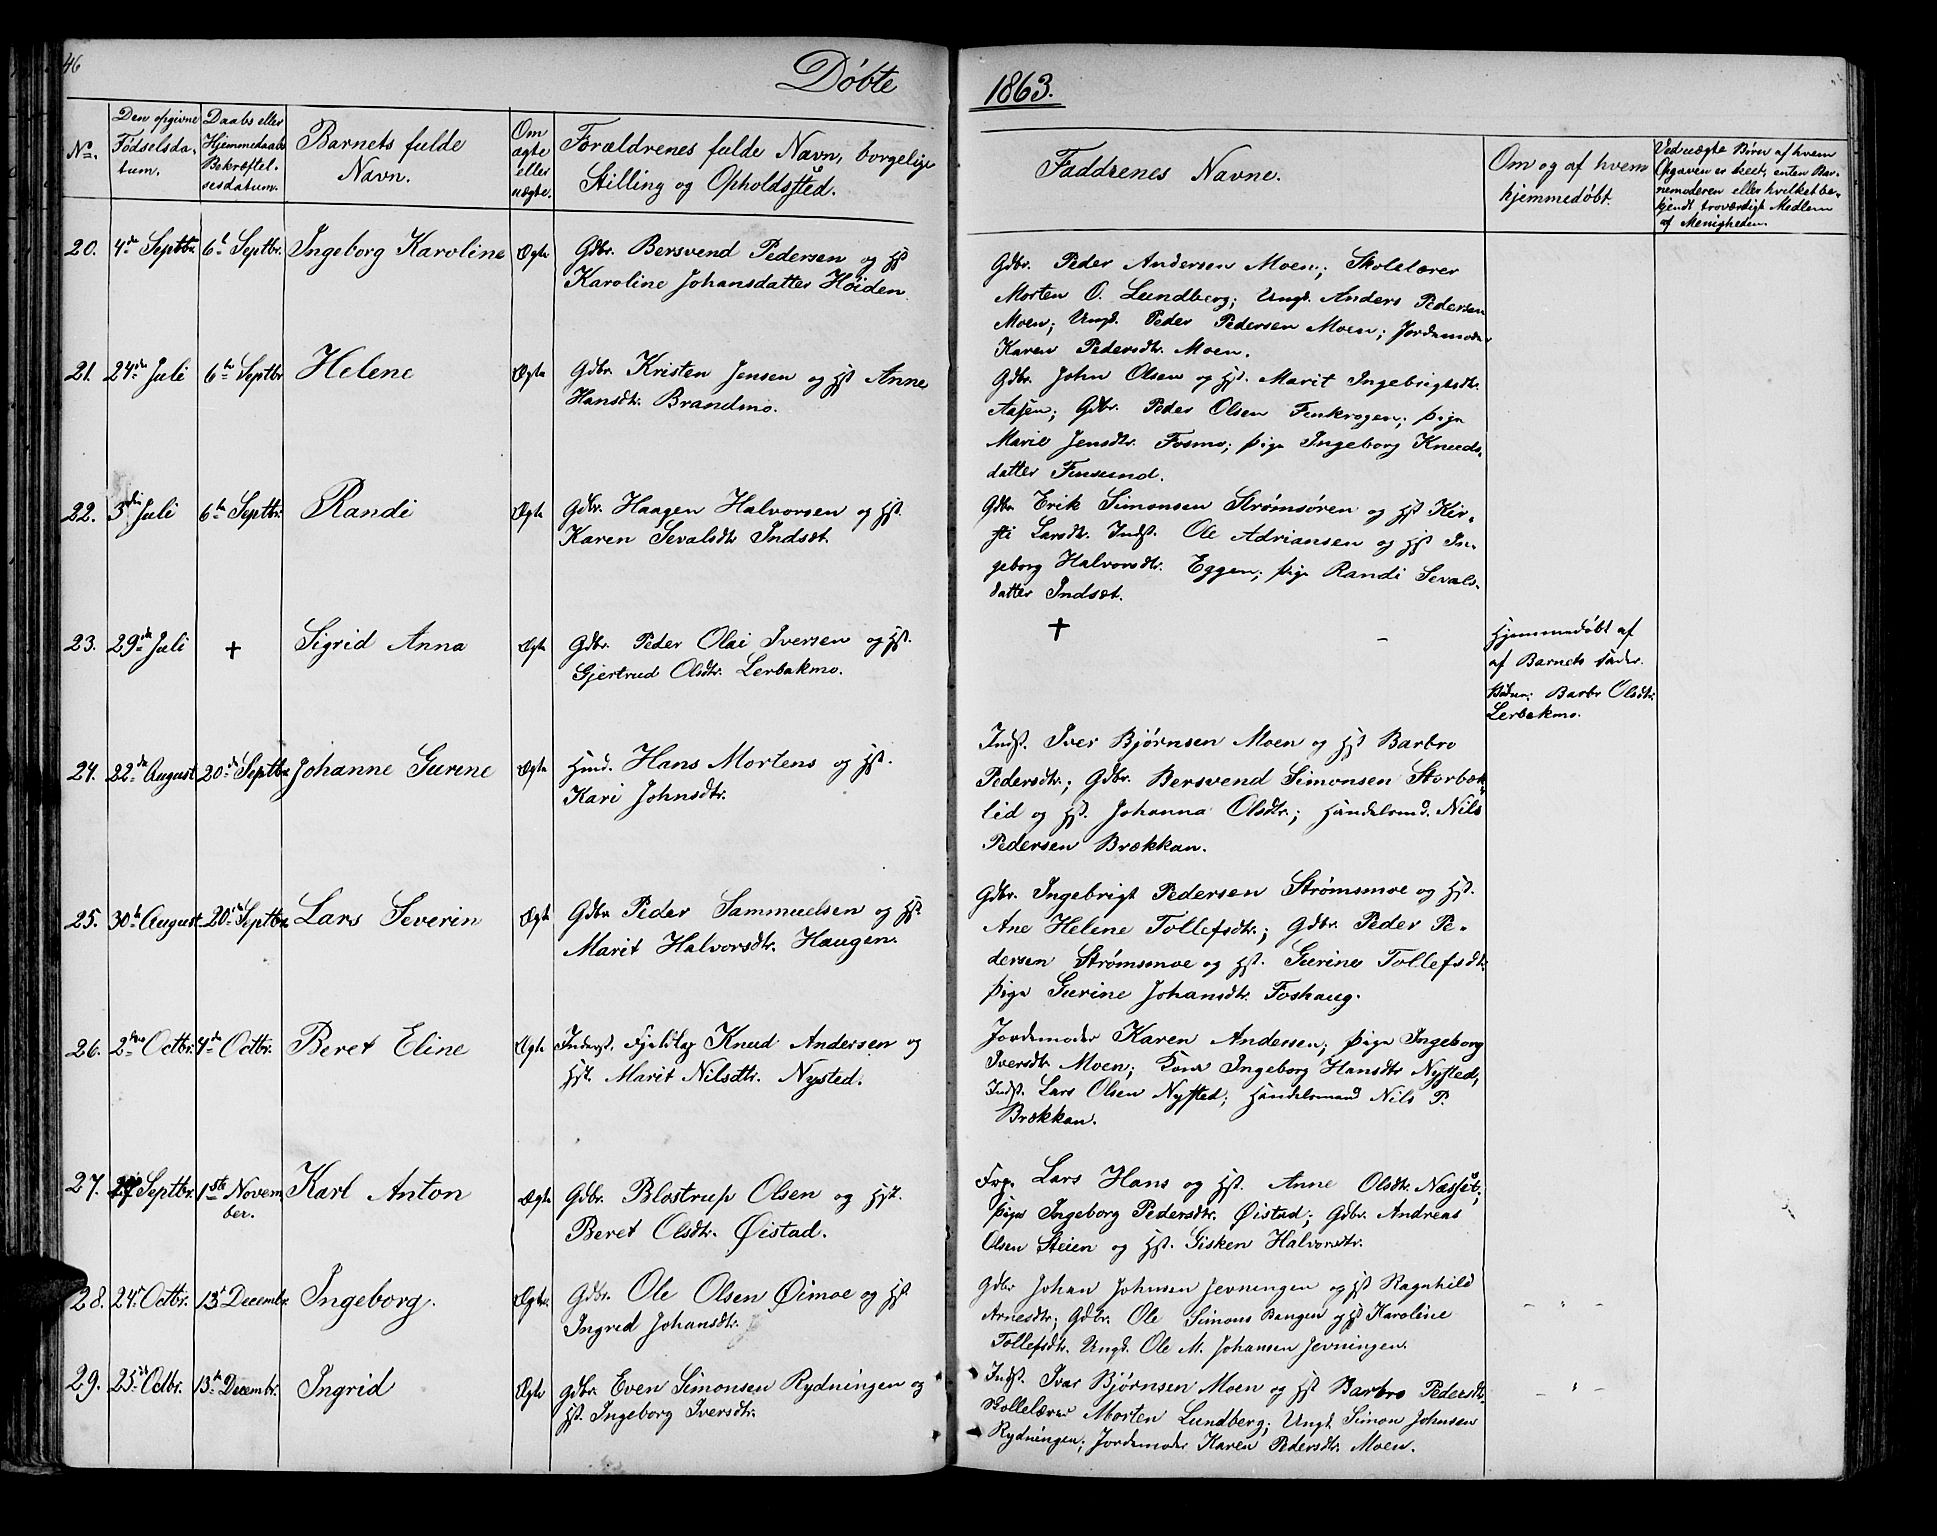 46
Døbte
1863.
No.
Den opgivne
Fødselsda-
tum.
Daabs eller
Hjemmedaabs
Bekræftel-
sesdatum.
Barnets fulde
Navn.
Om
ægte
eller
uægte.
Forældrenes fulde Navn, borgelige
Stilling og Opholdssted.
Faddrenes Navne.
Om og af hvem
hjemmedøbt.
Ved uægte Børn af hvem
Opgaven er skeet, enten Bar-
nemoderen eller hvilket be-
kjendt troværdigt Medlem
af Menigheden.
20. 4de Septbr. 6te Septbr. Ingeborg Karoline Ægte Gdbr. Bersvend Pedersen og Hst
Karoline Johansdatter Høiden
Gdbr. Peder Andersen Moen; Skolelærer
Morten O. Lundberg; Ungk. Anders Pedersen
Moen; Ungk. Peder Pedersen Moen; Jordemoder
Karen Pedersdtr. Moen.
21. 24de Juli 6te Septbr Helene Ægte Gdbr. Kristen Jensen og Hst Anne
Hansdtr. Brandmo.
Gdbr. John Olsen og Hst. Marit Ingebrigtsdtr.
Aasen; Gdbr. Peder Olsen Finkrogen; Pige
Marie Jensdtr. Fosmo; Pige Ingeborg Knuds-
datter Finsund.
22. 3die Juli 6te Septbr. Randi Ægte Gdbr. Haagen Halvorsen og Hst.
Karen Sevalsdtr Indsæt.
Gdbr Erik Simonsen Strømsøren og Hst Kir-
sti Larsdtr. Indst. Ole Adriansen og Hst In-
geborg Halvorsdtr. Eggen; Pige Randi Sevals-
datter Indsæt.
23. 29de Juli + Sigrid Anna Ægte Gdbr. Peder Olai Iversen og Hst.
Gjertrud Olsdtr. Lerbakmo.
+ -
Hjemmedøbt af
af Barnets Fader.
Barbr Olsdtr.
Lerbakmo.
24. 22de August 20de Septbr Johanne Gurine Ægte Hmd. Hans Mortens og Hst.
Kari Johnsdtr.
Indst. Iver Bjørnsen Moen og Hst Barbro
Pedersdtr.; Gdbr. Bersvend Simonsen Storbæk-
lid og Hst. Johanna Olsdtr.; Handelsmd. Nils
Pedersen Brækkan.
25. 30te August 20de Septbr Lars Severin Ægte Gdbr Peder Sammuelsen og Hst.
Marit Halvorsdtr. Haugen.
Gdbr. Ingebrigt Pedersen Strømsmoe og Hst.
Ane Helene Tollefsdtr.; Gdbr. Peder Pe-
dersen Strømsmoe og Hst. Gurine Tollefsdtr.
Pige Gurine Johansdtr. Foshaug.
26. 2den Octbr. 4de Octbr. Beret Eline Ægte Inderst. Knud Andersen og
Hst. Marit Nilsdtr. Nysted.
Jordemoder Karen Andersen; Pige Ingeborg
Iversdtr. Moen; Kone Ingeborg Hansdtr Nysted,
Indst. Lars Olsen Nysted; Handelsmand Nils P.
Brækkan.
27. Septbr. 1ste Novem
ber.
Karl Anton Ægte Gdbr. Blostrup Olsen og Hst.
Beret Olsdtr. Øistad.
Lars Hans og Hst. Anne Olsdtr. Næsset;
Pige Ingeborg Pedersdtr. Øistad; Gdbr. Andreas
Olsen Steien og Hst. Gisken Halvorsdtr.
28. 24de Octbr. 13de Decembr. Ingeborg. Ægte. Gdbr. Ole Olsen Øimoe og Hst
Ingrid Johansdtr.
Gdbr Johan Johnsen Jevningen og Hst Ragnhild
Arnesdtr; Gdbr. Ole Simons Bangen og Hst Karoline
Tollefsdtr. Ungk. Ole M. Johansen Jevningen.
- " -
29. 25de Octbr. 13de Decembr. Ingrid Ægte Gdbr. Even Simonsen Rydningen og
Hst. Ingeborg Iversdtr.
Indst. Ivar Bjørnsen Moen og Hst Barbro Pedersdtr.
Skollelærer Morten Lundberg; Ungk. Simon Johnsen
Rydningen; Jordemoder Karen Pedersdtr. Moen.
- " -